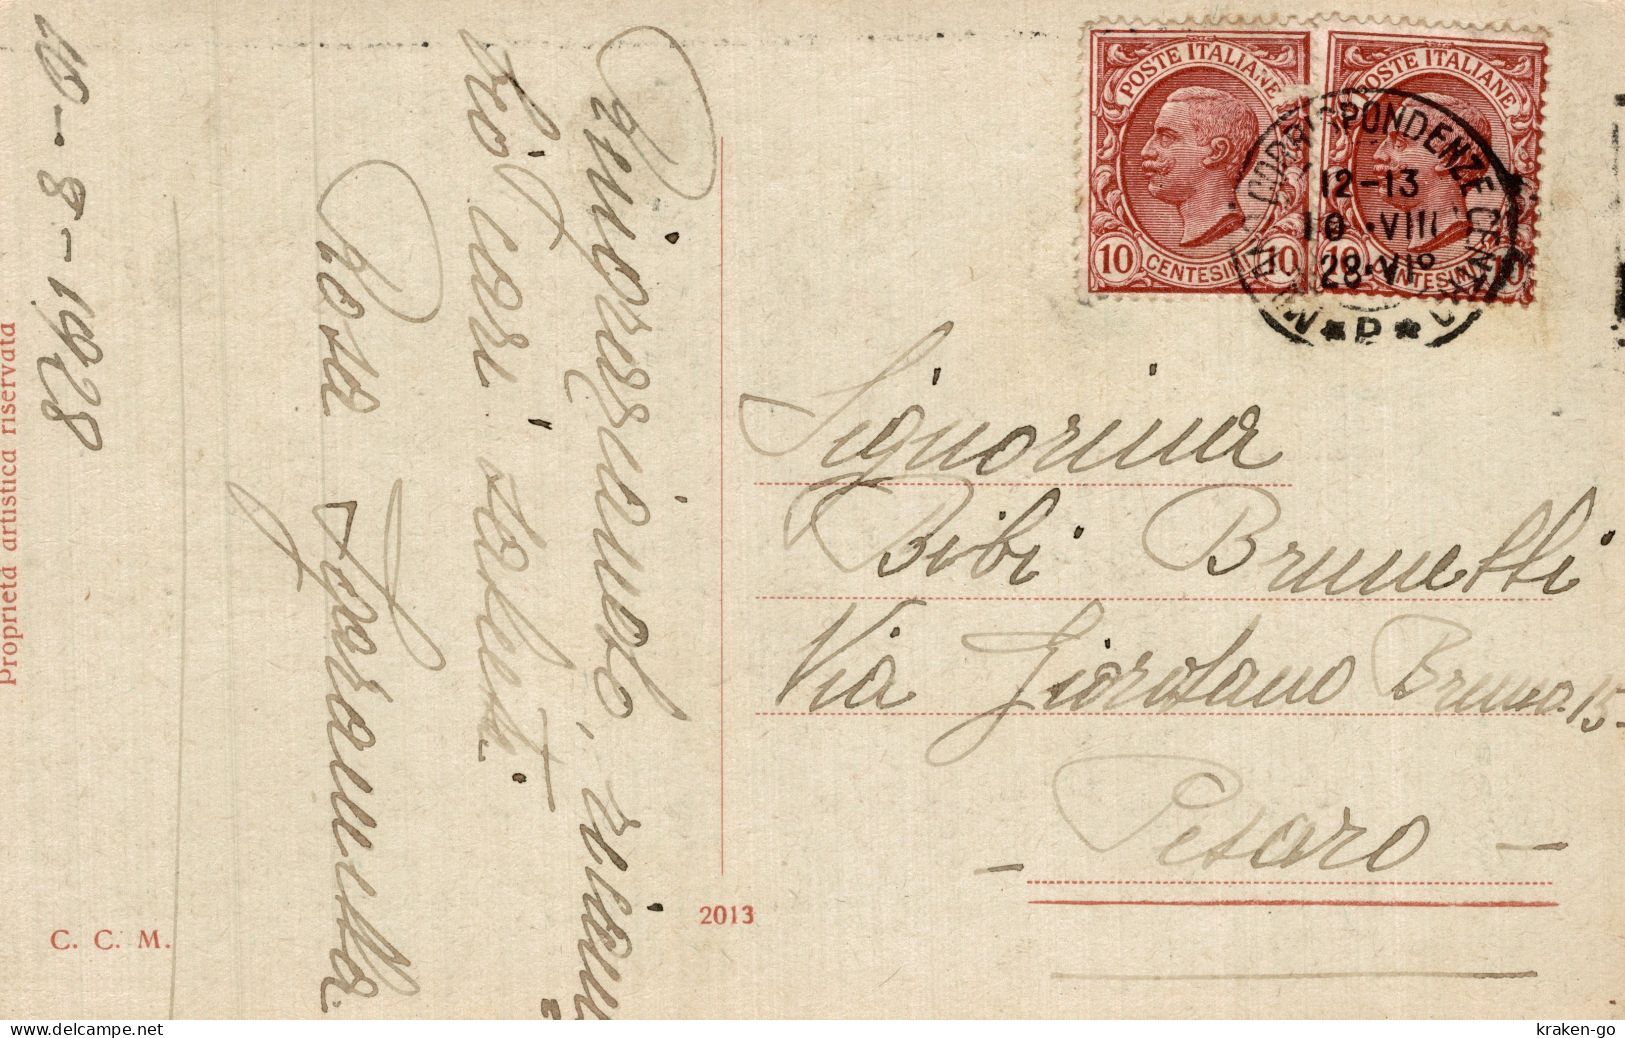 10-8-1928
Ringraziando, riamu
trò cari saluti.
Rosa
POSTE ITALIANE
10 CENTESIMI 10
POSTE ITALIANE
10 CENTESIMI 10
MILANO CORRISPONDENZE CENTRO
12-13
10·VIII
28·VIº
* P *
Signorina
Bibi Brunetti
Via Giordano Bruno 15-
- Pesaro -
Proprietà artistica riservata
C. C. M.
2013
delcampe.net
kraken-go